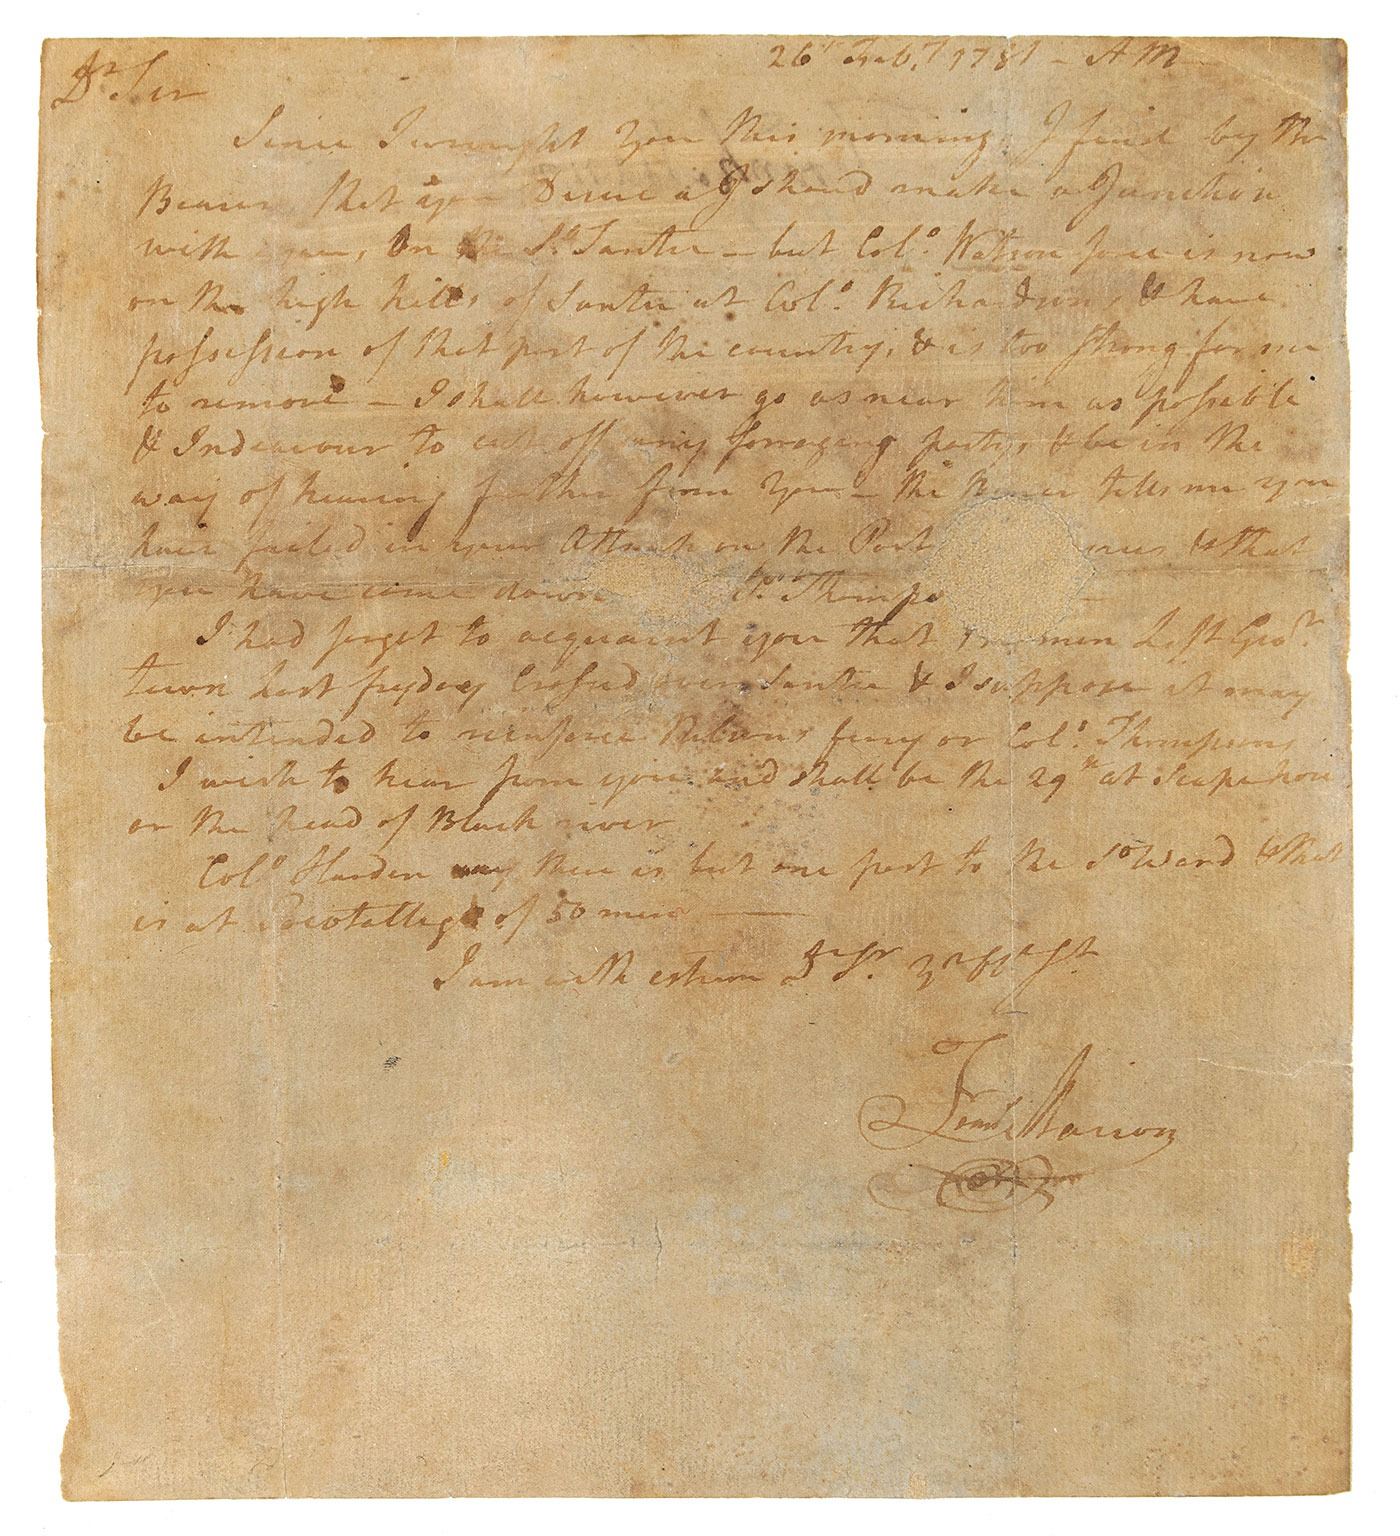 26t Feb.y 1781 - AM
Dr Sir
Since I wrought you this morning, I find by the
Bearer that you Desire I shoud make a Junction
with you, on So. Santee - but Colo. Watson force is now
on the high hills of Santee at Colo. Richardsons, & have
possession of that part of the country, & is too strong for me
to remove - I shall however go as near him as possible
& Indeavour to cut off any forraging party, & be in the
way of hearing further from you - the Bearer tells me you
have failed in your Attempt on the Post & that
you have come down Thomps
I had forgot to acquaint you that men Left Geor.
town last fryday Crossed over Santee & I suppose it may
be intended to reinforce Nelsons ferry or Colo. Thompsons
I wish to hear from you and shall be the 29th at Scape hore
or the head of Black river
Colo Harden says there is but one post to the So Ward & that
is at Pocotallego of 50 men
I am with esteem Dr Sr. Yr Obt St.
Frans Marion